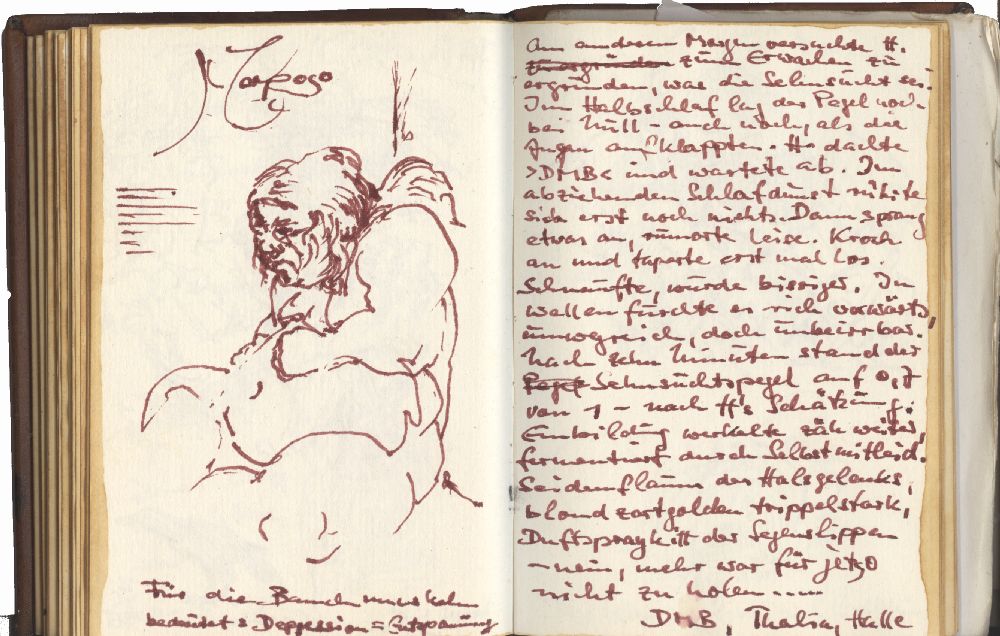 Morposo
Für die Bauchmuskeln
bedeutet Depression = Entspannung
Am anderen Morgen versuchte H.
zum Erwachen zu
ergründen, was die Sehnsucht sei.
Im Halbschlaf lag der Pegel noch
bei Null – auch noch, als die
Augen aufklappten. H. dachte
>DMB< und wartete ab. Im
abziehenden Schlafdunst rührte
sich erst noch nichts. Dann sprang
etwas an, rumorte leise. Kroch
an und taperte erst mal los.
Schnaufte, wurde bissiger. In
Wellen furchte es sich vorwärts,
unwegreich, doch unbeirrbar.
Nach zehn Minuten stand der
Pegel Sehnsuchtspegel auf 0,7
von 1 – nach H's Schätzung.
Einbildung werkelte zäh weiter,
fermentiert durch Selbstmitleid.
Seidenflaum des Halsgelenks,
blond zartgolden trippelstark,
Duftspraykitt der Segenslippen
– nein, mehr war für jetzo
nicht zu holen .....
DMB, Thalia, Halle